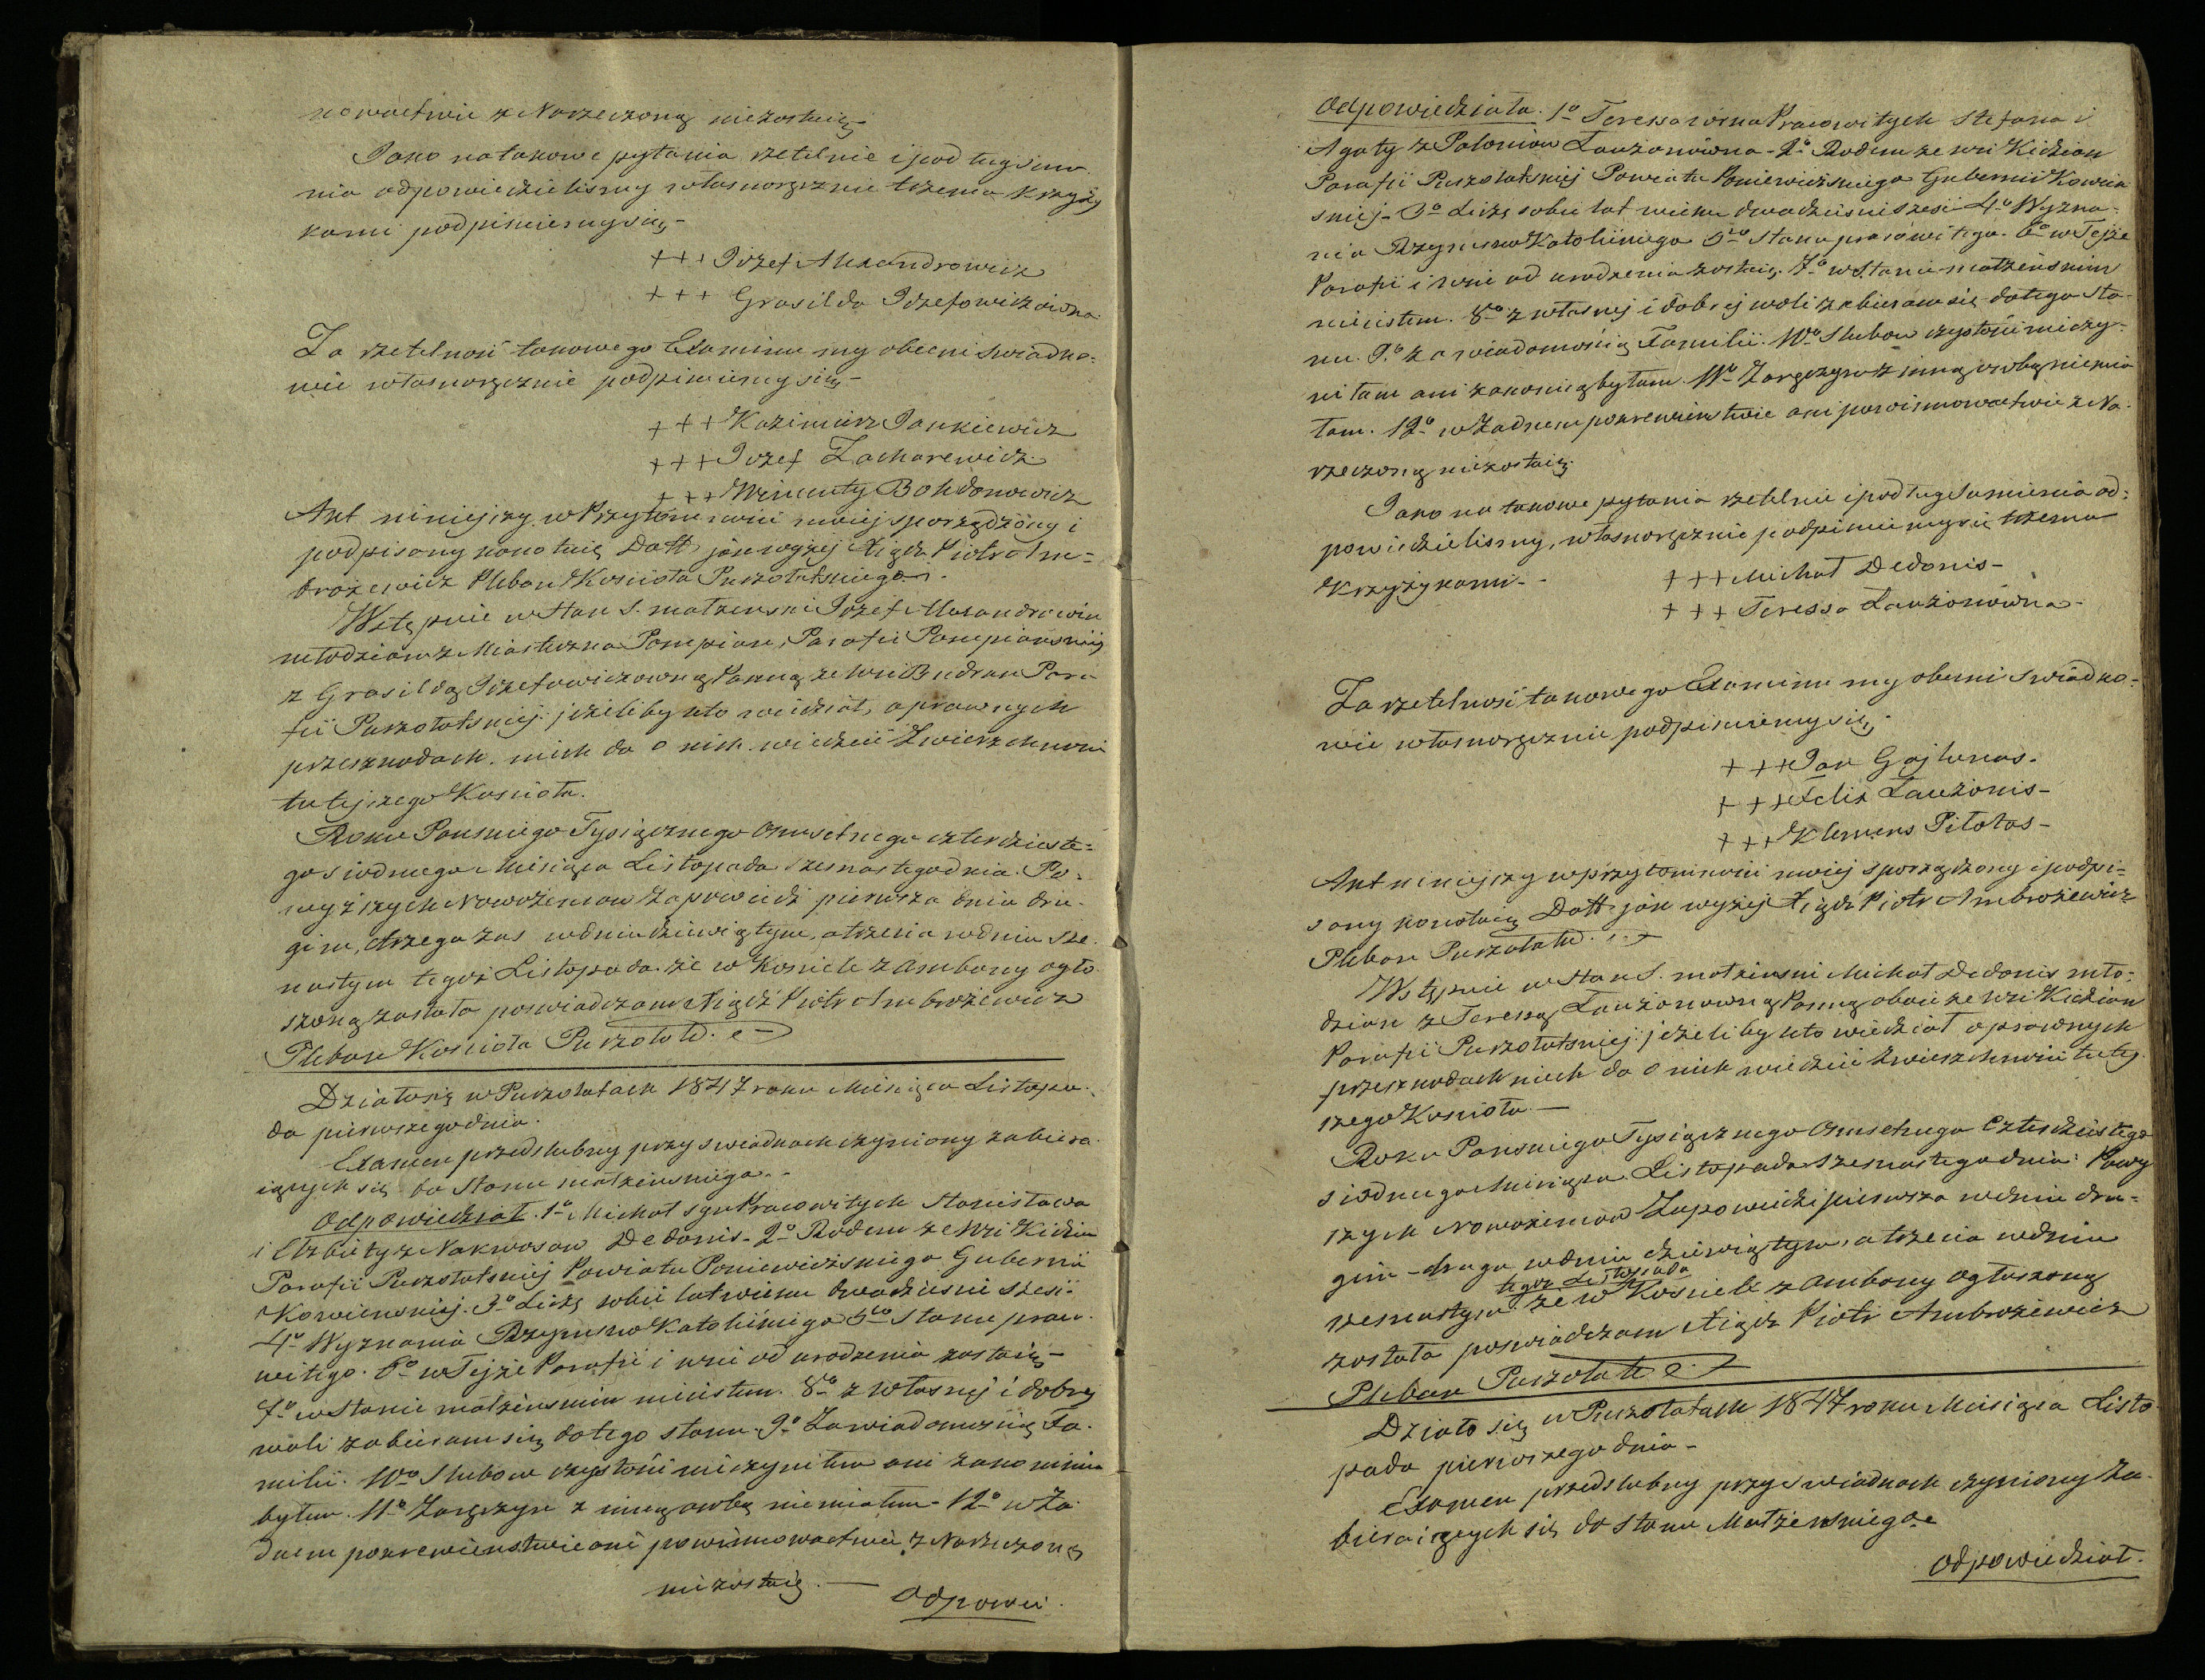 nowactwie z Narzeczoną niezostaię.
Jako na takowe pytania rzetelnie i podług sum-
nia odpowiedzielismy własnoręcznie trzema krzyży
kami podpisuiemy się.
+++ Jozef Alexandrowicz
+++ Grasilda Jozefowiczowna
Za rzetelność takowego Examinu my obecni swiadko-
wie własnoręcznie podpisuiemy się.
+++ Kazimierz Jankiewicz
+++ Jozef Zacharewicz
+++ Wincenty Bohdanowicz
Akt ninieyszy w Przytomnosci moiey sporządzony i
podpisany konotuię Datt jak wyżej Xiądz Piotr Am=
brożewicz Pleban Koscioła Puszołatskiego.
Wstępuie w stan S. małżenski Jozef Alexandrowicz
młodzian z Miasteczka Pompian, Parafii Pompianskiej
z Grasildą Jozefowiczowną Panną ze wsi Budran Para
fii Puszołatskiej: jeżeliby kto wiedział, o prawnych
przeszkodach, niech da o nich wiedzieć Zwierzchnosci
tutejszego Koscioła.
Roku Panskiego Tysiącznego Osmsetnego czterdzieste=
go siodmego Miesiąca Listopada szesnastego dnia. Po-
wyższych Nowożencow Zapowiedź pierwsza dnia dru-
giego zas w dniu dziewiątym, a trzecia w dniu sze-
nastym tegoż Listopada że w Kosciele z Ambony ogło
szoną została poswiadczam Xiądz Piotr Ambrożewicz
Pleban Koscioła Puszołatt.
Działo się w Puszołatach 1847 roku Miesiąca Listopa-
da pierwszego dnia.
Examen przedslubny przy swiadkach czyniony zabiera-
iących się do Stanu małżenskiego.
Odpowiedział. 1o Michał syn Pracowitych Stanisława
i Elzbiety z Nakwosow Dedonis. 2o Rodem ze wsi Kidzian
Parafii Puszołatskiej Powiatu Poniewiezskiego Gubernii
Kowienskiej. 3o Liczę sobie lat wieku dwadziescia szesć.
4o Wyznania Rzymsko Katolickiego 5to Stanu praco-
witego. 6o w Tejże Parafii i wsi od urodzenia zostaię.
7o w Stanie małżenskim nieiestem. 8o z własnej i dobrej
woli zabieram się do tego stanu. 9o Za wiadomoscią Fa-
milii. 10o Slubow czystości nieczyniłem ani zakonnikiem
byłem. 11o Zaręczyn z inną osobą niemiałem. 12o w Ża-
dnem pokrewienstwie ani powinowactwie z Narzeczoną
niezostaię.
Odpowie.
Odpowiedziała. 1o Teressa corka Pracowitych Stefana i
Agaty z Paloniow Łauzonowna. 2o Rodem ze wsi Kidzian
Parafii Puszołatskiej Powiatu Poniewiezskiego Gubernii Kowien
skiej. 3o Liczę sobie lat wieku dwadziescia szesć 4o Wyzna-
nia Rzymsko Katolickiego 5to Stanu pracowitego. 6o w Tejże
Parafii i wsi od urodzenia zostaię. 7o w Stanie małżenskim
nieiestem. 8o z własnej i dobrej woli zabieram się do tego Sta-
nu. 9o za wiadomością Familii. 10o Slubow czystości nieczy-
niłam ani zakonnicą byłam. 11o Zaręczyn z inną osobą niemia
łam. 12o w Żadnem pokrewienstwie ani powinowactwie z Na-
rzeczoną niezostaię.
Jako na takowe pytania rzetelnie i podług Sumienia od-
powiedzielismy, własnoręcznie podpisuiemy się trzema
Krzyżykami.
+++ Michał Dedonis
+++ Teressa Łauzonowna
Za rzetelność takowego Examinu my obecni swiadko-
wie własnoręcznie podpisuiemy się.
+++ Jan Gajlunas.
+++ Felix Łauzonis
+++ Klemens Pitotas
Akt ninieyszy w przytomności moiej sporządzony i podpi-
sany konotuię Datt jak wyżej Xiądz Piotr Ambrożewicz
Pleban Puszołatt.
Wstępuie w stan S. małżenski Michał Dedonis mło-
dzian z Teressą Łauzonowną Panną oboie ze wsi Kidzian
Parafii Puszołatskiej: jeżeliby kto wiedział o prawnych
przeszkodach niech da o nich wiedzieć Zwierzchności tutej
szego Koscioła.
Roku Panskiego Tysiącznego Osmsetnego Czterdziestego
siodmego Miesiąca Listopada szesnastego dnia: Powy
szych Nowożencow Zapowiedzi pierwsza w dniu dru-
gim - druga w dniu dziewiątym, a trzecia w dniu
szesnastym tegoż Listopada że w Kosciele z Ambony Ogłoszoną
została poswiadczam Xiądz Piotr Ambrożewicz
Pleban Puszołatt
Działo się w Puszołatach 1847 roku Miesiąca Listo-
pada pierwszego dnia.
Examen przedslubny przy Swiadkach czyniony Za-
bieraiących się do Stanu Małżenskiego.
Odpowiedział.